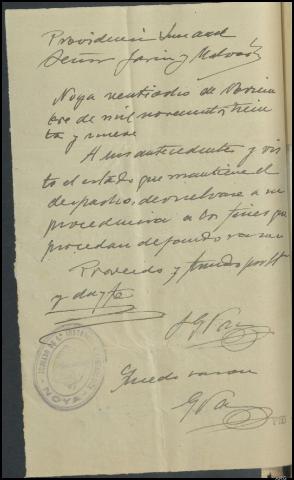 Providencia Juez
Señor Garin y Malvar
Noya veintiocho de Noviem
bre de mil novecientos trein
ta y nueve
A sus antecedentes y vis
to el estado que mantiene el
despacho, devuelvase a su
procedencia a los fines que
procedan dejando razon
Proveido y firmado por Sª
y doy fe
Queda razon
NOYA